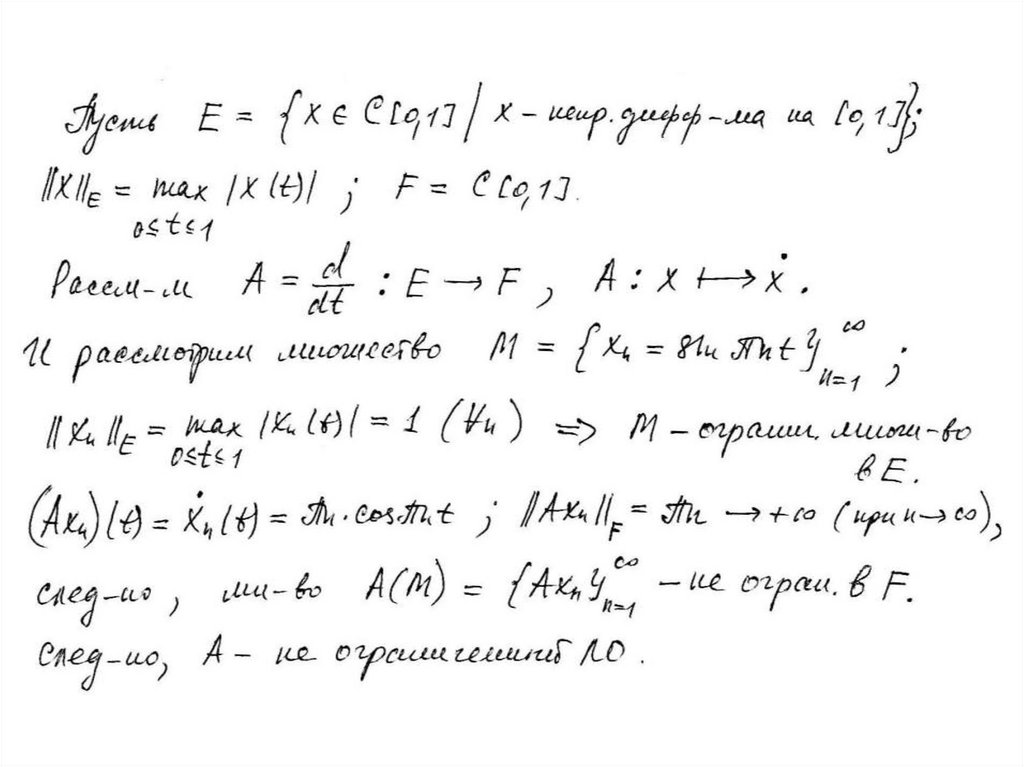 Пусть E = {x ∈ C[0,1] | x - непр. дифф-ма на [0,1]};
||x||_E = max |x(t)| ; F = C[0,1].
0≤t≤1
Рассм-м A = d/dt : E → F , A : x ↦ ẋ .
И рассмотрим множество M = {x_n = sin πnt}_{n=1}^∞ ;
||x_n||_E = max |x_n(t)| = 1 (∀n) ⇒ M - огранич. множ-во
0≤t≤1 в E.
(Ax_n)(t) = ẋ_n(t) = πn·cos πnt ; ||Ax_n||_F = πn → +∞ (при n→∞),
след-но, мн-во A(M) = {Ax_n}_{n=1}^∞ - не огран. в F.
След-но, A - не ограниченный ЛО.